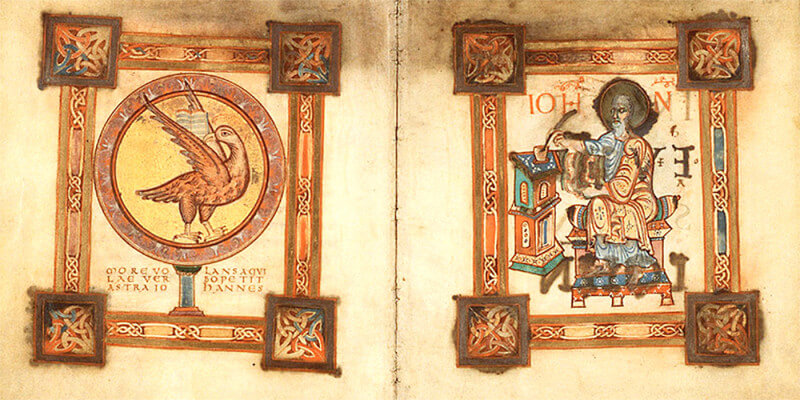 MORE VO LANS AQVI
LAE VER BO PETIT
ASTRA IO HANNES
IOH NI